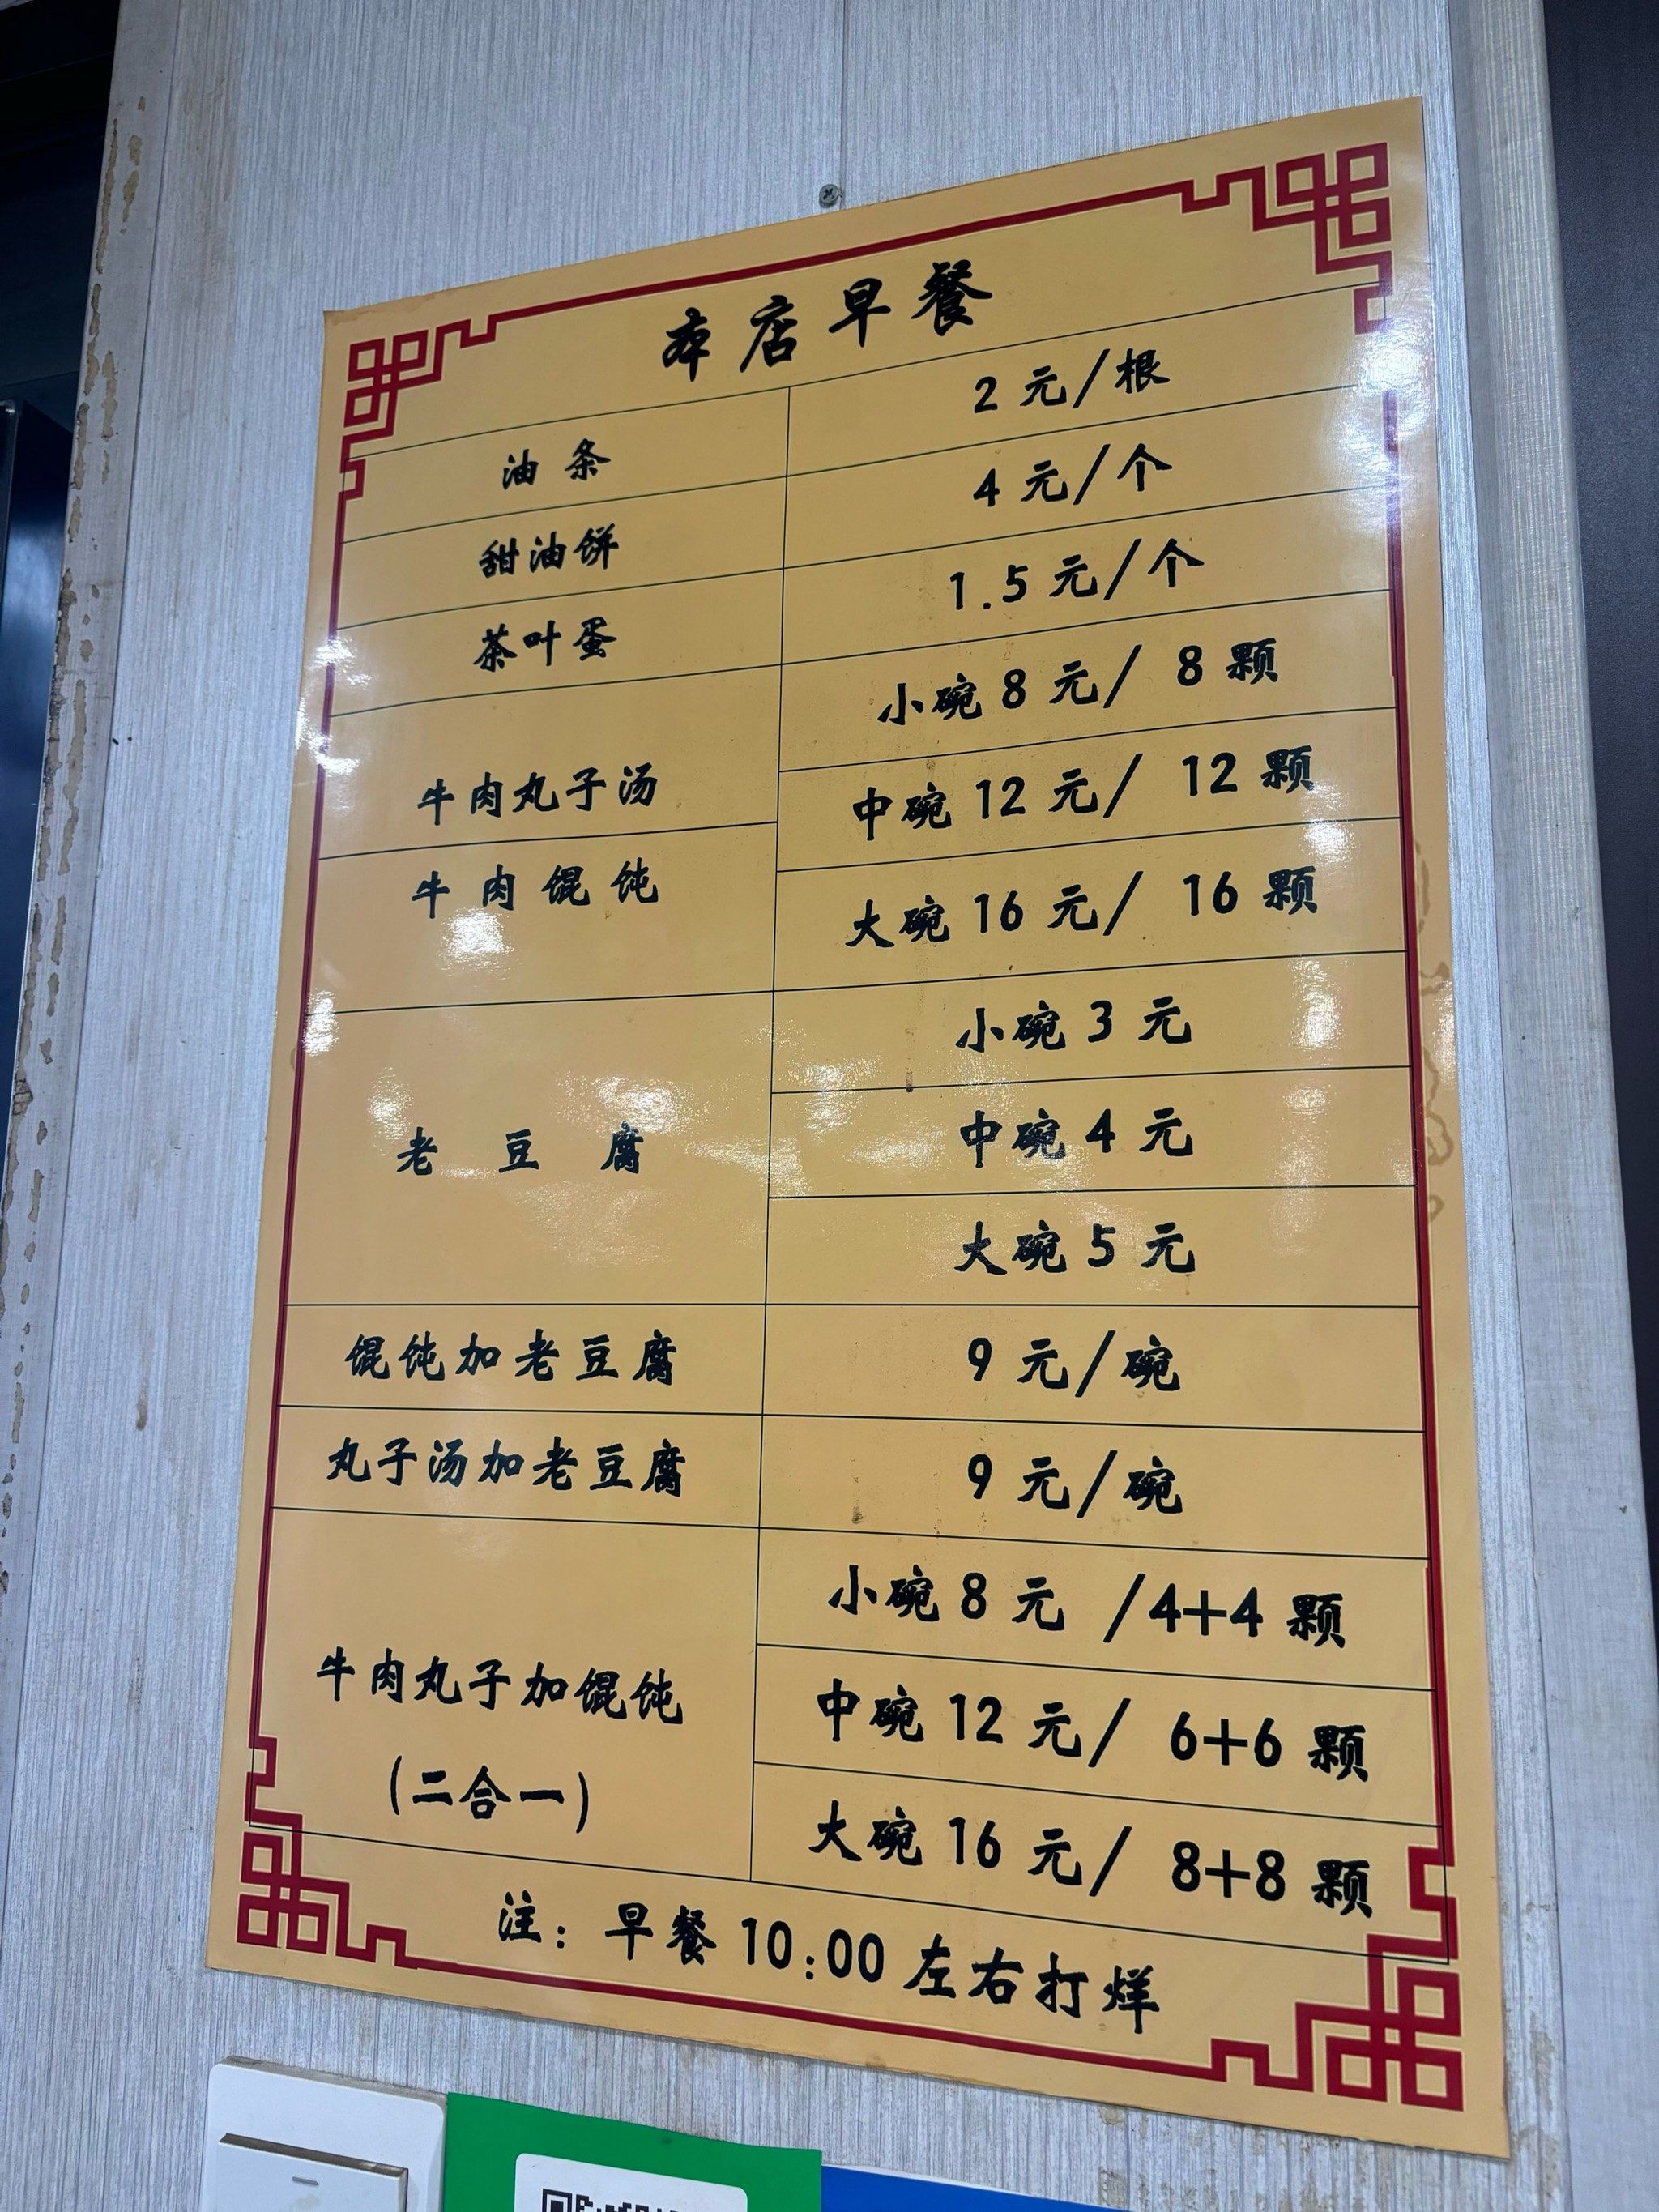 本店早餐
油条 2元/根
甜油饼 4元/个
茶叶蛋 1.5元/个
牛肉丸子汤
牛肉馄饨
小碗8元/ 8颗
中碗12元/ 12颗
大碗16元/ 16颗
老豆腐
小碗3元
中碗4元
大碗5元
馄饨加老豆腐 9元/碗
丸子汤加老豆腐 9元/碗
牛肉丸子加馄饨
(二合一)
小碗8元 /4+4颗
中碗12元/ 6+6颗
大碗16元/ 8+8颗
注：早餐10:00左右打烊